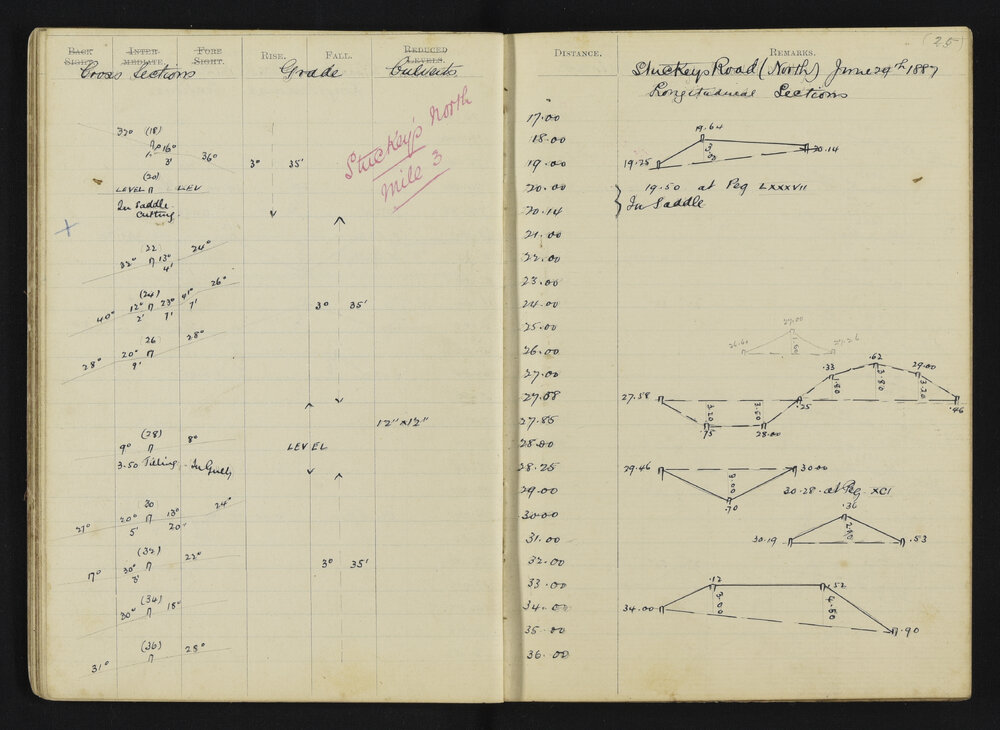 BACK SIGHT. INTER- MEDIATE. FORE SIGHT. RISE. FALL. REDUCED LEVELS.
Cross Sections Grade Culverts
Stuckey's North
Mile 3
32° (18)
16°
3' 36° 3° 35'
(20)
LEVEL LEV
In Saddle
Cutting
(22
32° 13° 24°
4'
(24) 41° 26°
40° 12° 23° 7'
2' 7' 3° 35'
26 28°
28° 20°
9'
12" x 12"
(28) 8°
9° LEVEL
3.50 Filling In Gully
30 24°
21° 20° 13°
5' 20'
(32) 22°
17° 30° 3° 35'
3'
(34) 18°
30°
(36) 28°
31°
(25)
DISTANCE. REMARKS.
Stuckeys Road (North) June 29th 1887
Longitudinal Sections
17.00
18.00
19.00
20.00
20.14
21.00
22.00
23.00
24.00
25.00
26.00
27.00
27.58
27.85
28.00
28.25
29.00
30.00
31.00
32.00
33.00
34.00
35.00
36.00
19.64
19.25 20.14
19.50 at Peg LXXXVII
In Saddle
27.00
26.60 1.60 27.26
.62
.33 29.00
1.80 3.80 3.20
27.58 .25 .46
3.20 3.50
.75 28.00
29.46 30.00
3.00
.70
30.28 at Peg XCI
.36
2.90
30.19 .53
.12 .52
3.00 4.50
34.00
.90